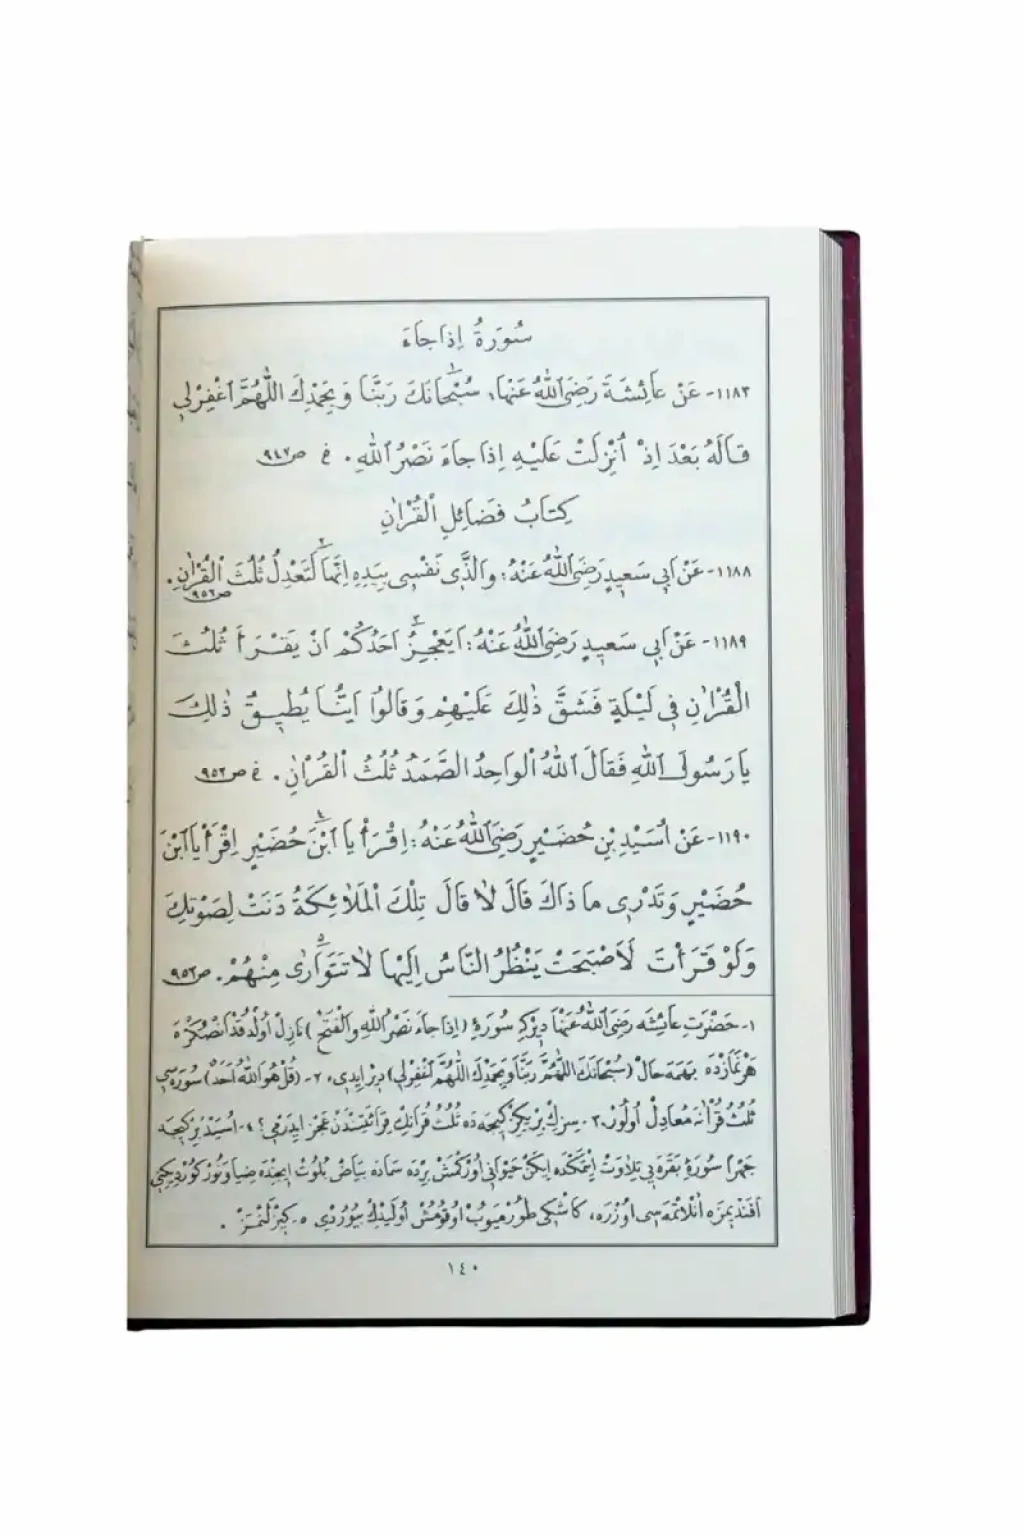 سُورَةُ اِذَا جَاءَ
١١٨٣- عَنْ عَائِشَةَ رَضِيَ اللّٰهُ عَنْهَا، سُبْحَانَكَ رَبَّنَا وَبِحَمْدِكَ اللّٰهُمَّ اغْفِرْلِي
قَالَهُ بَعْدَ اِذْ اُنْزِلَتْ عَلَيْهِ اِذَا جَاءَ نَصْرُ اللّٰهِ. خ ص ٩٤٧
كِتَابُ فَضَائِلِ الْقُرْاٰنِ
١١٨٨- عَنْ اَبِي سَعِيدٍ رَضِيَ اللّٰهُ عَنْهُ: وَالَّذِي نَفْسِي بِيَدِهِ اِنَّهَا٢ لَتَعْدِلُ ثُلُثَ الْقُرْاٰنِ.
ص ٩٥٢
١١٨٩- عَنْ اَبِي سَعِيدٍ رَضِيَ اللّٰهُ عَنْهُ: اَيَعْجِزُ٣ اَحَدُكُمْ اَنْ يَقْرَأَ ثُلُثَ
الْقُرْاٰنِ فِي لَيْلَةٍ فَشَقَّ ذٰلِكَ عَلَيْهِمْ وَقَالُوا اَيُّنَا يُطِيقُ ذٰلِكَ
يَا رَسُولَ اللّٰهِ فَقَالَ اَللّٰهُ الْوَاحِدُ الصَّمَدُ ثُلُثُ الْقُرْاٰنِ. خ ص ٩٥٢
١١٩٠- عَنْ اُسَيْدِ بْنِ حُضَيْرٍ رَضِيَ اللّٰهُ عَنْهُ: اِقْرَأْ يَا ابْنَ٤ حُضَيْرٍ اِقْرَأْ يَا ابْنَ
حُضَيْرٍ وَتَدْرِي مَا ذَاكَ قَالَ لَا قَالَ تِلْكَ الْمَلَائِكَةُ دَنَتْ لِصَوْتِكَ
وَلَوْ قَرَأْتَ لَاَصْبَحَتْ يَنْظُرُ النَّاسُ اِلَيْهَا لَا تَتَوَارٰى٥ مِنْهُمْ. ص ٩٥٢
١- حَضْرَتِ عَائِشَه رَضِيَ اللّٰهُ عَنْهَا دِيرْكِه سُورَۀِ (اِذَا جَاءَ نَصْرُ اللّٰهِ وَالْفَتْحُ) نَازِلْ اُولْدُقْدَنْ صُكْرَه
هَرْ نَمَازْدَه بَهَمَه حَالْ (سُبْحَانَكَ اللّٰهُمَّ رَبَّنَا وَبِحَمْدِكَ اللّٰهُمَّ اغْفِرْلِي) دِيرْ اِيدِى. ٢- (قُلْ هُوَ اللّٰهُ اَحَدٌ) سُورَه سِى
ثُلُثُ قُرْاٰنَه مُعَادِلْ اُولُورْ. ٣- سِزِكْ بِرِيكِزْ كِيجَه دَه ثُلُثُ قُرْاٰنِكْ قِرَائَتِنْدَنْ عَجْزْ اِيدَرْمِى؟ ٤- اُسَيْدْ بِرْ كِيجَه
جَهْرًا سُورَۀِ بَقَرَه يِى تِلَاوَتْ اِيتْمَكْدَه اِيكَنْ حَيْوَانِى اُورْكْمَشْ بِرْدَه سَمَادَه بَيَاضْ بُلُوتْ اِيچِنْدَه ضِيَا وَنُورْ كُورْدِيكِنِى
اَفَنْدِيمِزَه اَنْلَاتْمَه سِى اُوزَرَه، كَاشْكِى طُورْمَيُوبْ اُوقُومُشْ اُولَيْدِكْ بُيُورْدِى ٥- كِيزْلَنْمَزْ.
١٤٠